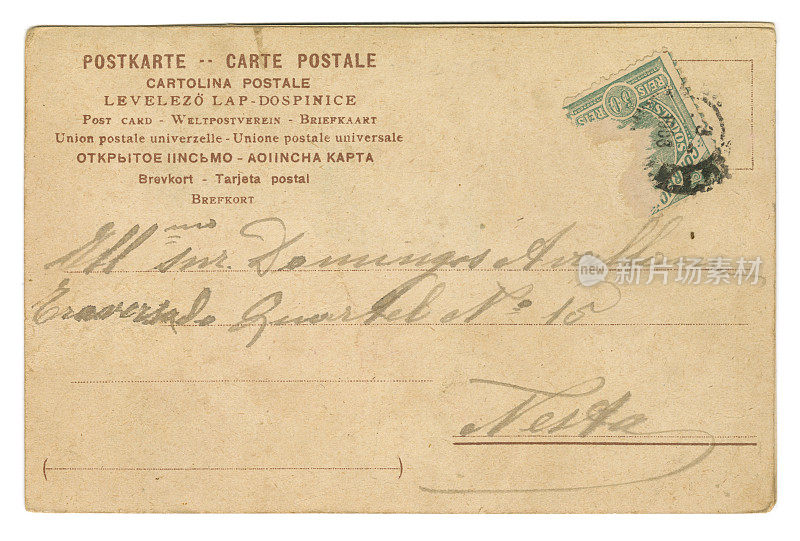 POSTKARTE -- CARTE POSTALE
CARTOLINA POSTALE
LEVELEZÖ LAP-DOSPINICE
POST CARD - WELTPOSTVEREIN - BRIEFKAART
Union postale univerzelle - Unione postale universale
ОТКРЫТОЕ IIИСЬМО - AOIINCHA КАРТА
Brevkort - Tarjeta postal
BREFKORT
REIS 30 REIS
Illmo Snr. Domingos
Travessa do Quartel No 15
Nesta
new 新片场素材